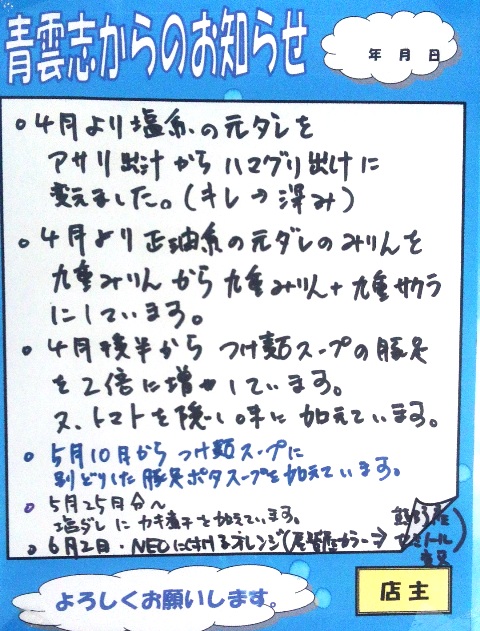 青雲志からのお知らせ
年 月 日
。4月より塩系の元ダレを
アサリ出汁からハマグリ出汁に
変えました。(キレ→深み)
。4月より正油系の元ダレのみりんを
九重みりんから九重みりん+九重サクラ
にしています。
。4月後半からつけ麺スープの豚足
を2倍に増やしています。
又、トマトを隠し味に加えています。
。5月10日からつけ麺スープに
別どりした豚足ポタスープを加えています。
。5月25日分〜
塩ダレにカキ煮干を加えています。
。6月2日・NEOにつけるオレンジ(
よろしくお願いします。
店主